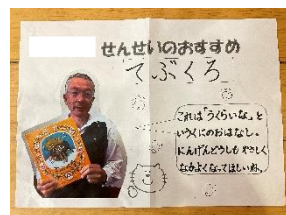 せんせいのおすすめ
てぶくろ
これは「うくらいな」と
いうくにのおはなし。
にんげんどうしも やさしく
なかよくなってほしいね。